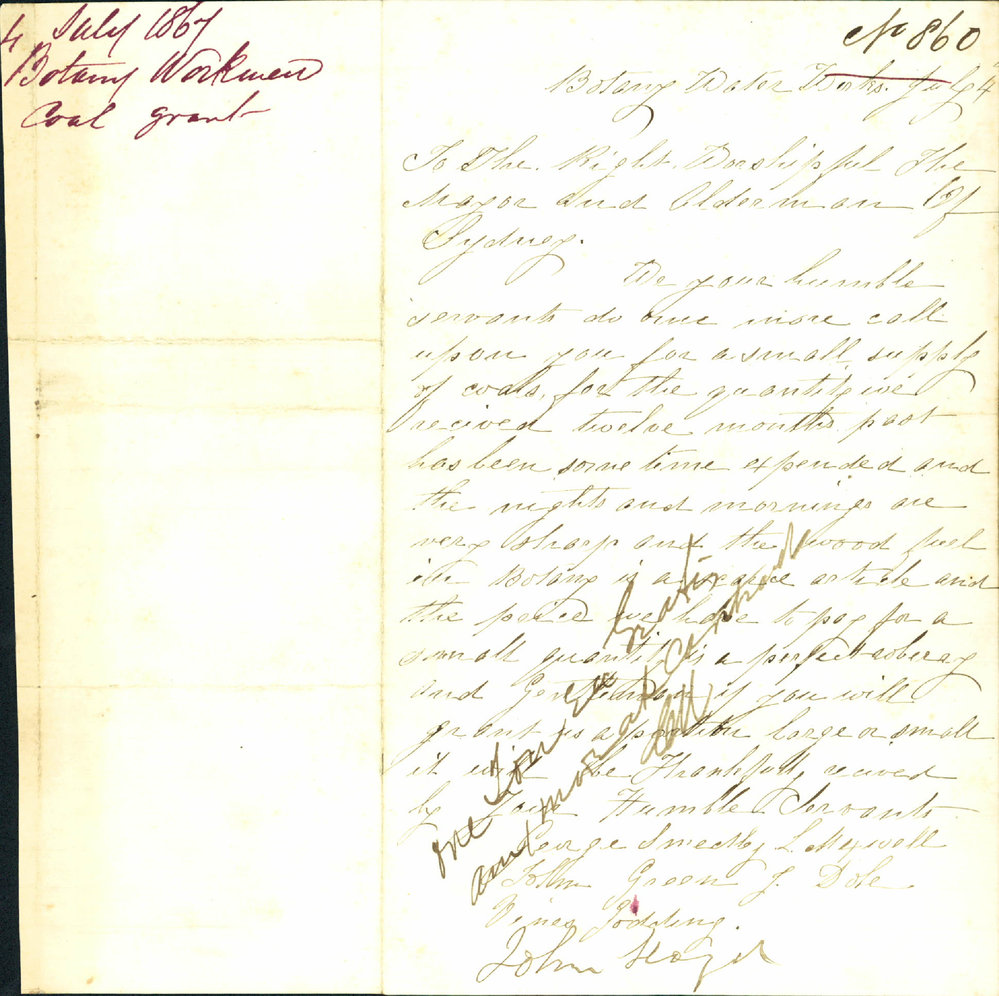 4 July 1867
Botany Workmen
Coal grant
No 860
Botany Water Works. July 4
To The Right Worshipful The
Mayor and Alderman Of
Sydney.
We your humble
servants do one more call
upon you for a small supply
of coals, for the quantity we
recived twelve months past
has been some time expended and
the nights and mornings are
very sharp and the wood fuel
in Botany is a scarce article and
the price we have to pay for a
small quantity is a perfect
and Gentleman if you will
grant us a portion large or small
it will be Thankfully recived
by your Humble Servants
George Smedley L
John Green J. Dole
Godding.
John
One Ton Ea Gratis
and more at